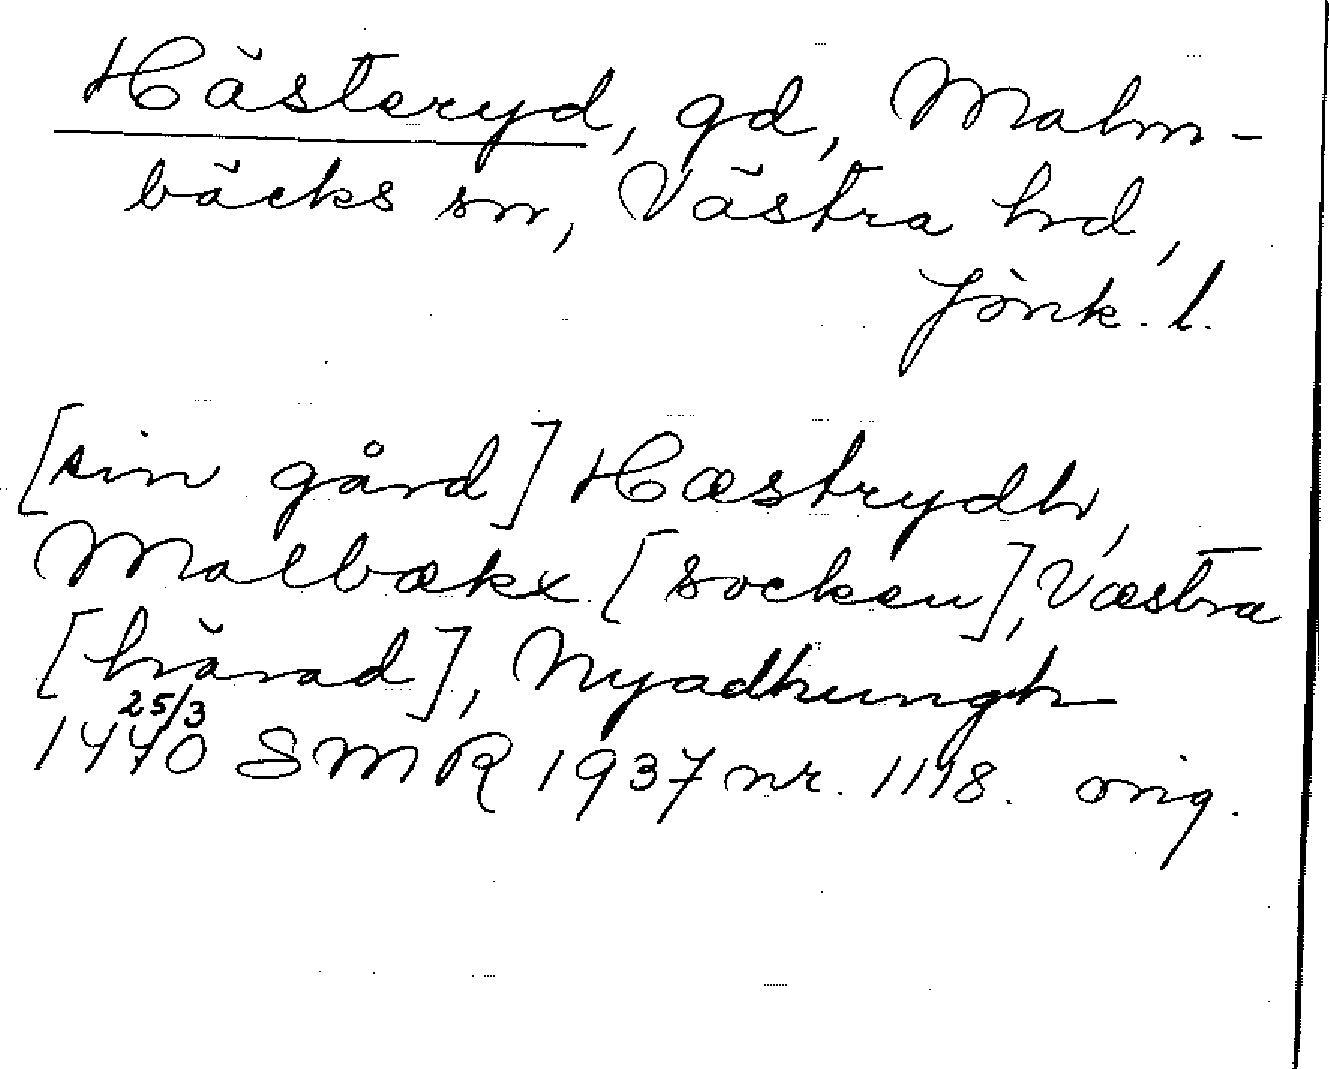 Hästeryd, gd, Malm-
bäcks sn, Västra hd,
Jönk. l.
[sin gård] Hæstrydh,
Malbækx [socken], Væstra
[härad], Nyadhungh
25/3
1440 SMR 1937 nr. 1118. orig.